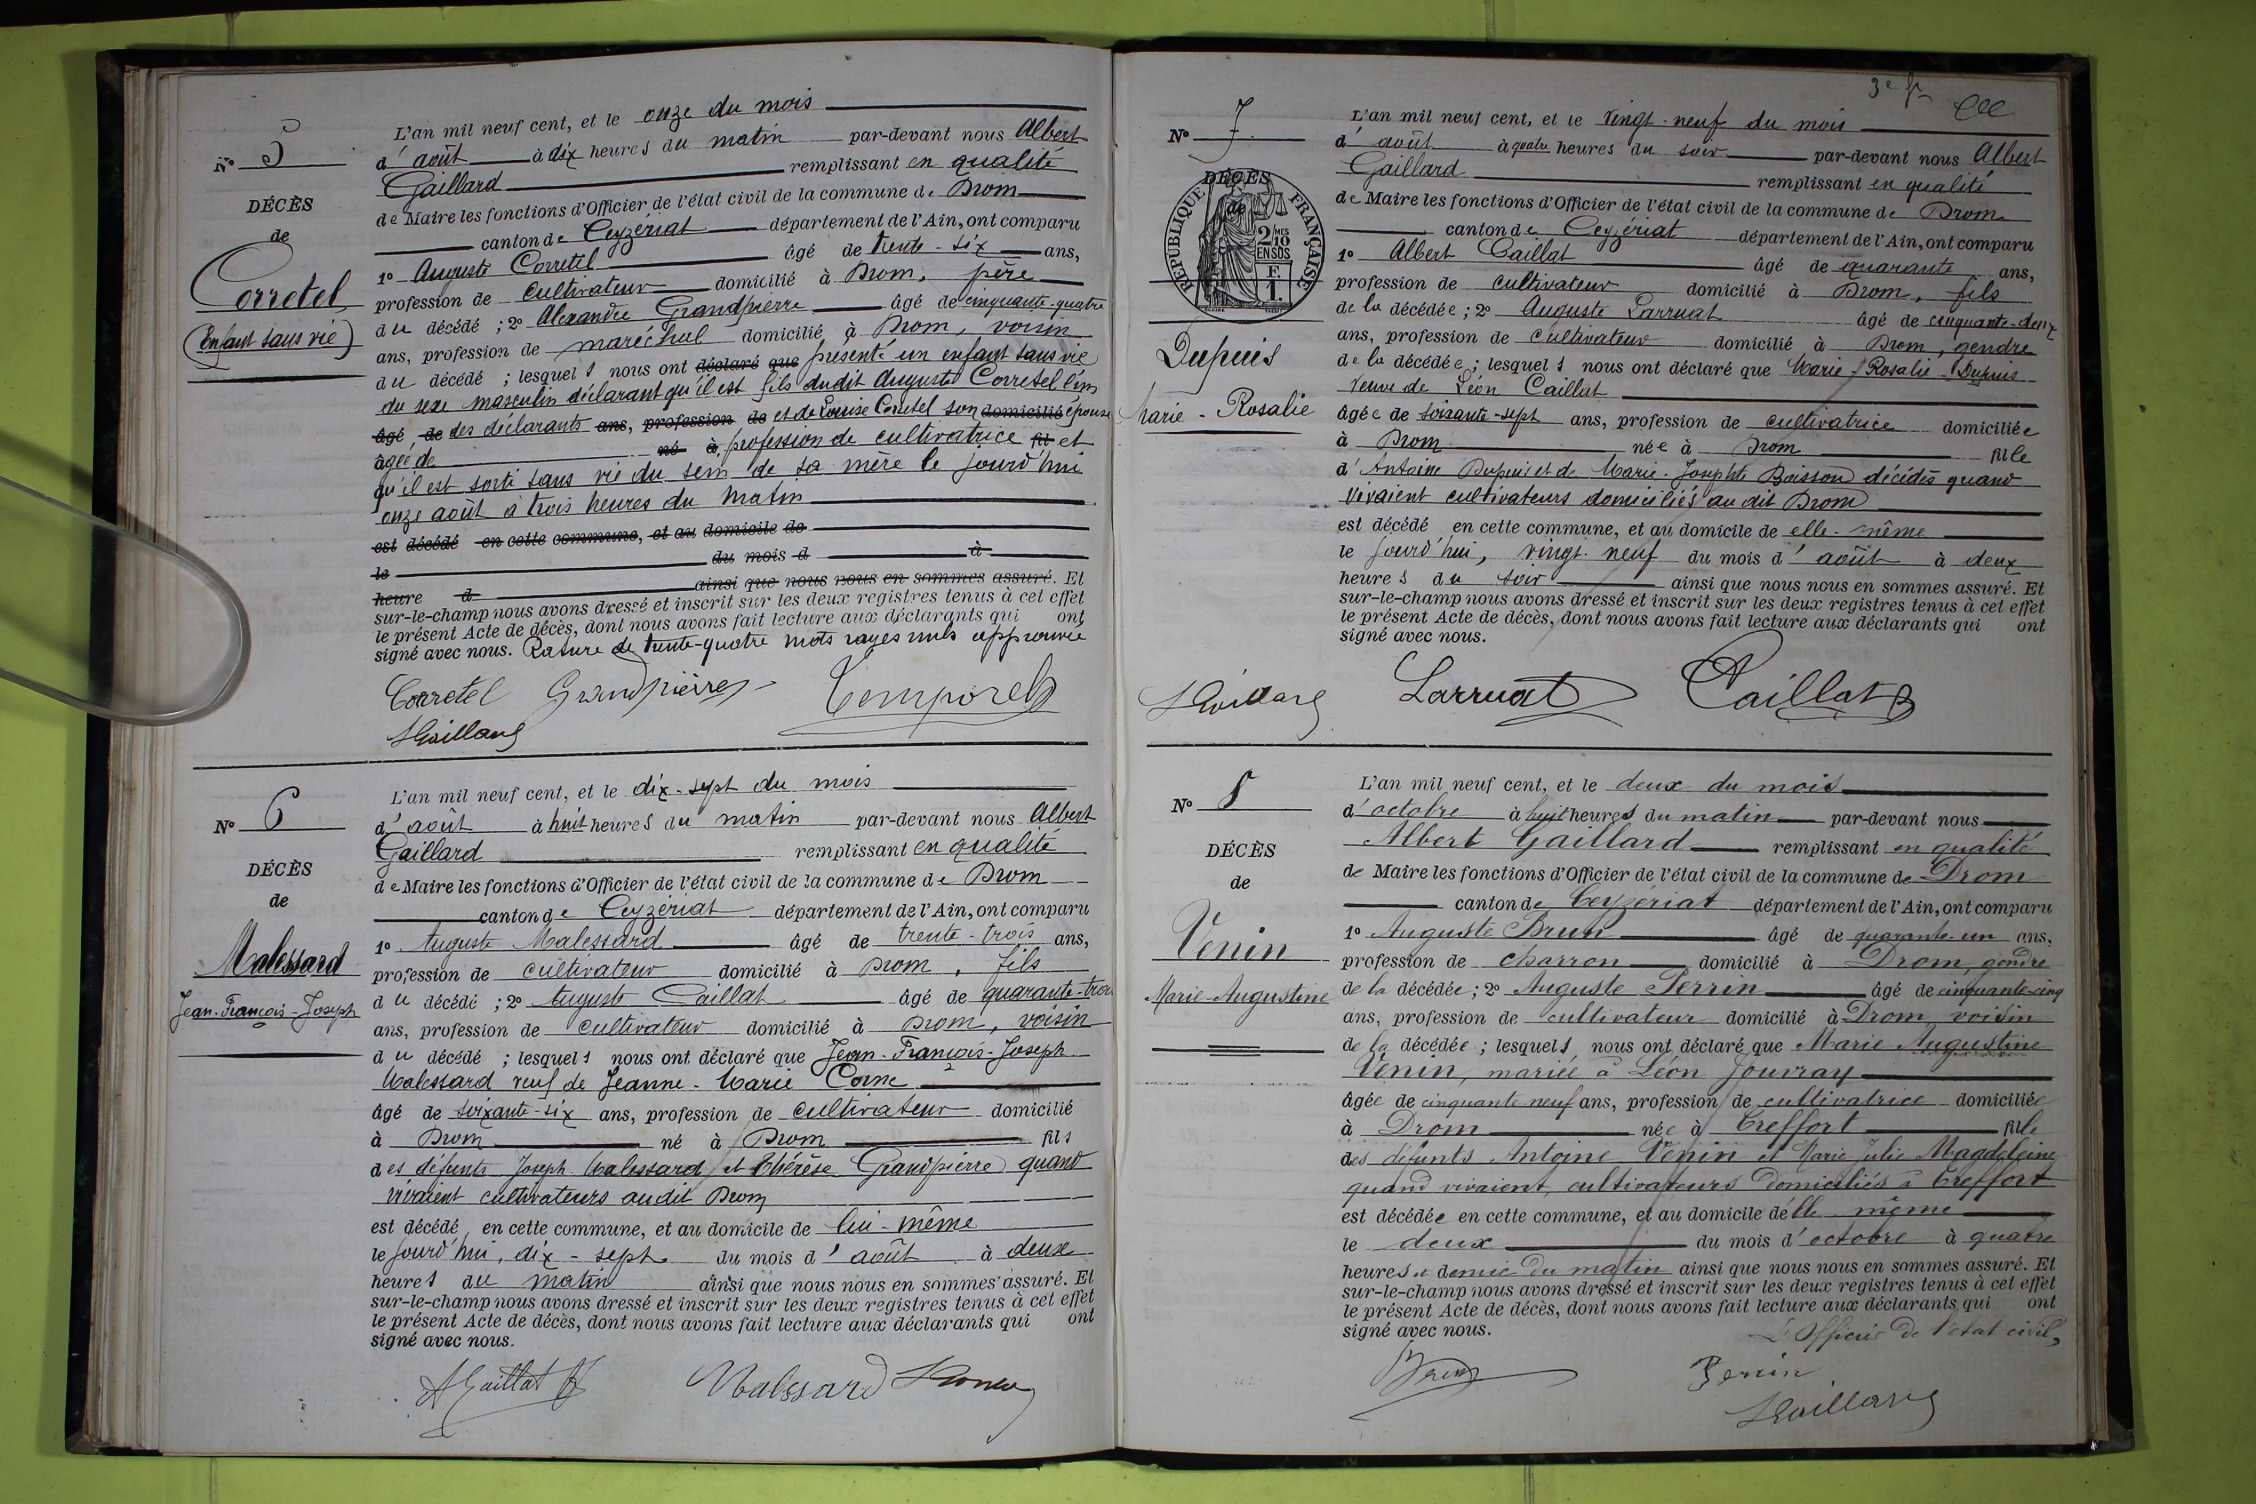 N° 5
DÉCÈS
de
Corretel
(Enfant sans vie)
L'an mil neuf cent, et le onze du mois
d'août à dix heures du matin par-devant nous Albert
Gaillard remplissant en qualité
de Maire les fonctions d'Officier de l'état civil de la commune de Drom
canton de Ceyzériat département de l'Ain, ont comparu
1° Auguste Corretel âgé de trente-six ans,
profession de cultivateur domicilié à Drom, père
du décédé ; 2° Alexandre Grandpierre âgé de cinquante-quatre
ans, profession de maréchal domicilié à Drom, voisin
du décédé ; lesquels nous ont déclaré que présenté un enfant sans vie
du sexe masculin déclarant qu'il est fils dudit Auguste Corretel l'un
âgé de des déclarants ans, profession de et de Louise Corretel son domicilié épouse
âgée de né à profession de cultivatrice fil et
qu'il est sorti sans vie du sein de sa mère le jourd'hui
onze août à trois heures du matin
est décédé en cette commune, et au domicile de
le du mois d à
heure d ainsi que nous nous en sommes assuré. Et
sur-le-champ nous avons dressé et inscrit sur les deux registres tenus à cet effet
le présent Acte de décès, dont nous avons fait lecture aux déclarants qui ont
signé avec nous. Rature de trente-quatre mots rayés nuls approuvée
Corretel Grandpierre Temporel
AGaillard
N° 6
DÉCÈS
de
Malessard
Jean-François-Joseph
L'an mil neuf cent, et le dix-sept du mois
d'août à huit heures du matin par-devant nous Albert
Gaillard remplissant en qualité
de Maire les fonctions d'Officier de l'état civil de la commune de Drom
canton de Ceyzériat département de l'Ain, ont comparu
1° Auguste Malessard âgé de trente-trois ans,
profession de cultivateur domicilié à Drom, fils
du décédé ; 2° Auguste Caillat âgé de quarante-trois
ans, profession de cultivateur domicilié à Drom, voisin
du décédé ; lesquels nous ont déclaré que Jean-François-Joseph
Malessard veuf de Jeanne-Marie Corne
âgé de soixante-six ans, profession de cultivateur domicilié
à Drom né à Drom fils
des défunts Joseph Malessard et Thérèse Grandpierre quand
vivaient cultivateurs audit Drom
est décédé en cette commune, et au domicile de lui-même
le jourd'hui, dix-sept du mois d'août à deux
heures du matin ainsi que nous nous en sommes assuré. Et
sur-le-champ nous avons dressé et inscrit sur les deux registres tenus à cet effet
le présent Acte de décès, dont nous avons fait lecture aux déclarants qui ont
signé avec nous.
Malessard
3e f
N° 7
DÉCÈS
de
RÉPUBLIQUE FRANÇAISE
2 MES 10
EN SUS
F.
1.
Dupuis
Marie-Rosalie
L'an mil neuf cent, et le vingt-neuf du mois
d'août à quatre heures du soir par-devant nous Albert
Gaillard remplissant en qualité
de Maire les fonctions d'Officier de l'état civil de la commune de Drom
canton de Ceyzériat département de l'Ain, ont comparu
1° Albert Caillat âgé de quarante ans,
profession de cultivateur domicilié à Drom, fils
de la décédée ; 2° Auguste Larruat âgé de cinquante-deux
ans, profession de cultivateur domicilié à Drom, gendre
de la décédée ; lesquels nous ont déclaré que Marie-Rosalie Dupuis
veuve de Léon Caillat
âgée de soixante-sept ans, profession de cultivatrice domiciliée
à Drom née à Drom fille
d'Antoine Dupuis et de Marie-Josephte Boisson décédés quand
vivaient cultivateurs domiciliés au dit Drom
est décédé en cette commune, et au domicile de elle-même
le jourd'hui, vingt-neuf du mois d'août à deux
heures du soir ainsi que nous nous en sommes assuré. Et
sur-le-champ nous avons dressé et inscrit sur les deux registres tenus à cet effet
le présent Acte de décès, dont nous avons fait lecture aux déclarants qui ont
signé avec nous.
AGaillard Larruat Caillat
N° 8
DÉCÈS
de
Venin
Marie-Augustine
L'an mil neuf cent, et le deux du mois
d'octobre à huit heures du matin par-devant nous
Albert Gaillard remplissant en qualité
de Maire les fonctions d'Officier de l'état civil de la commune de Drom
canton de Ceyzériat département de l'Ain, ont comparu
1° Auguste Brun âgé de quarante-un ans,
profession de charron domicilié à Drom, gendre
de la décédée ; 2° Auguste Perrin âgé de cinquante-cinq
ans, profession de cultivateur domicilié à Drom voisin
de la décédée ; lesquels nous ont déclaré que Marie Augustine
Venin, mariée à Léon Jouvray
âgée de cinquante-neuf ans, profession de cultivatrice domiciliée
à Drom née à Treffort fille
des défunts Antoine Venin et Marie Julie Magdeleine
quand vivaient, cultivateurs domiciliés à Treffort
est décédée en cette commune, et au domicile d'elle même
le deux du mois d'octobre à quatre
heures et demie du matin ainsi que nous nous en sommes assuré. Et
sur-le-champ nous avons dressé et inscrit sur les deux registres tenus à cet effet
le présent Acte de décès, dont nous avons fait lecture aux déclarants qui ont
signé avec nous. L'Officier de l'état civil,
Brun Perrin
AGaillard